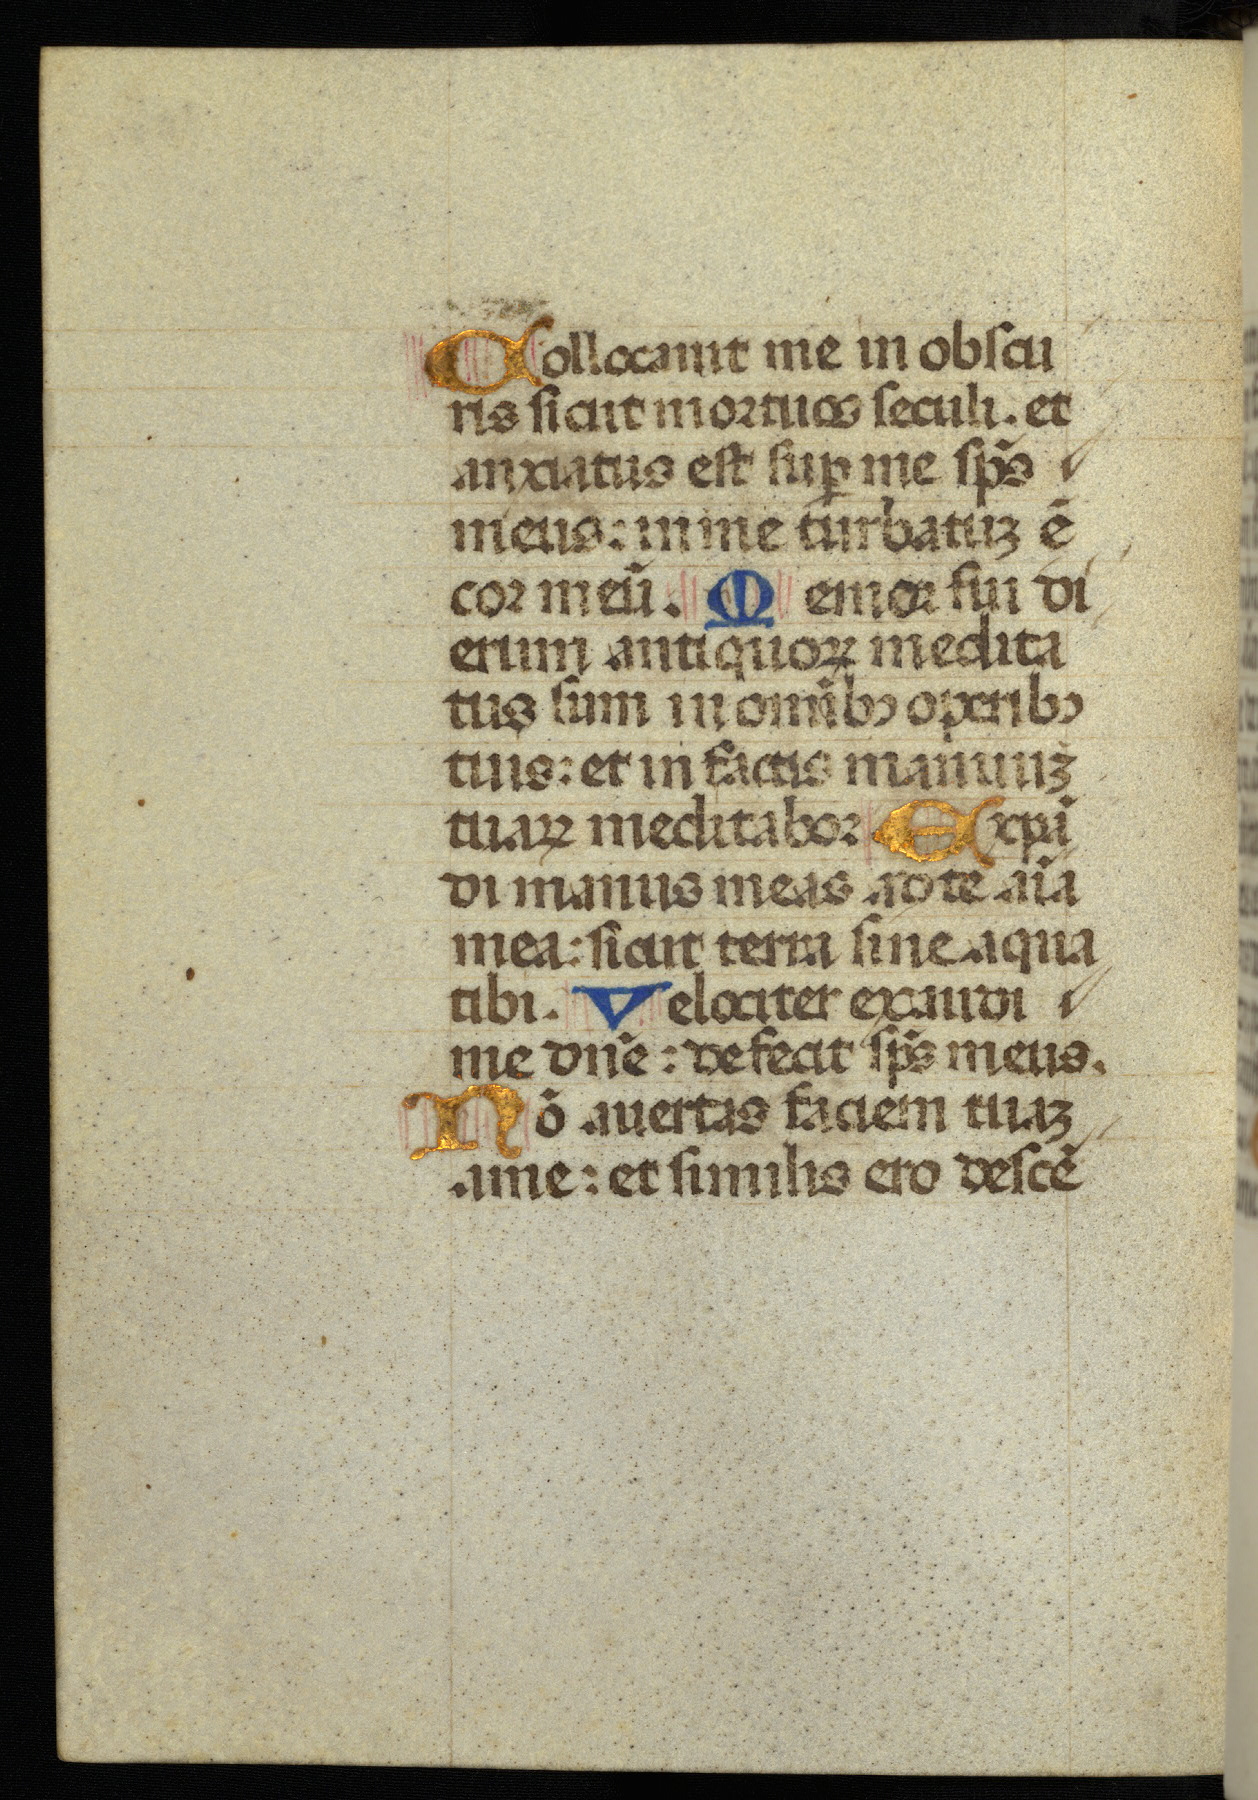 Collocauit me in obscu
ris sicut mortuos seculi. et
anxiatus est suꝑ me sp̃s
meus: in me turbatuʒ ē
cor meũ. Memor fui di
erum antiquoꝝ medita
tus sum in omĩbꝰ operibꝰ
tuis: et in factis manuuʒ
tuaꝝ meditabor Expã
di manus meas ad te aĩa
mea: sicut terra sine aqua
tibi. Velociter exaudi
me dñe: defecit sp̃s meus.
Nō auertas faciem tuaʒ
a me: et similis ero descē